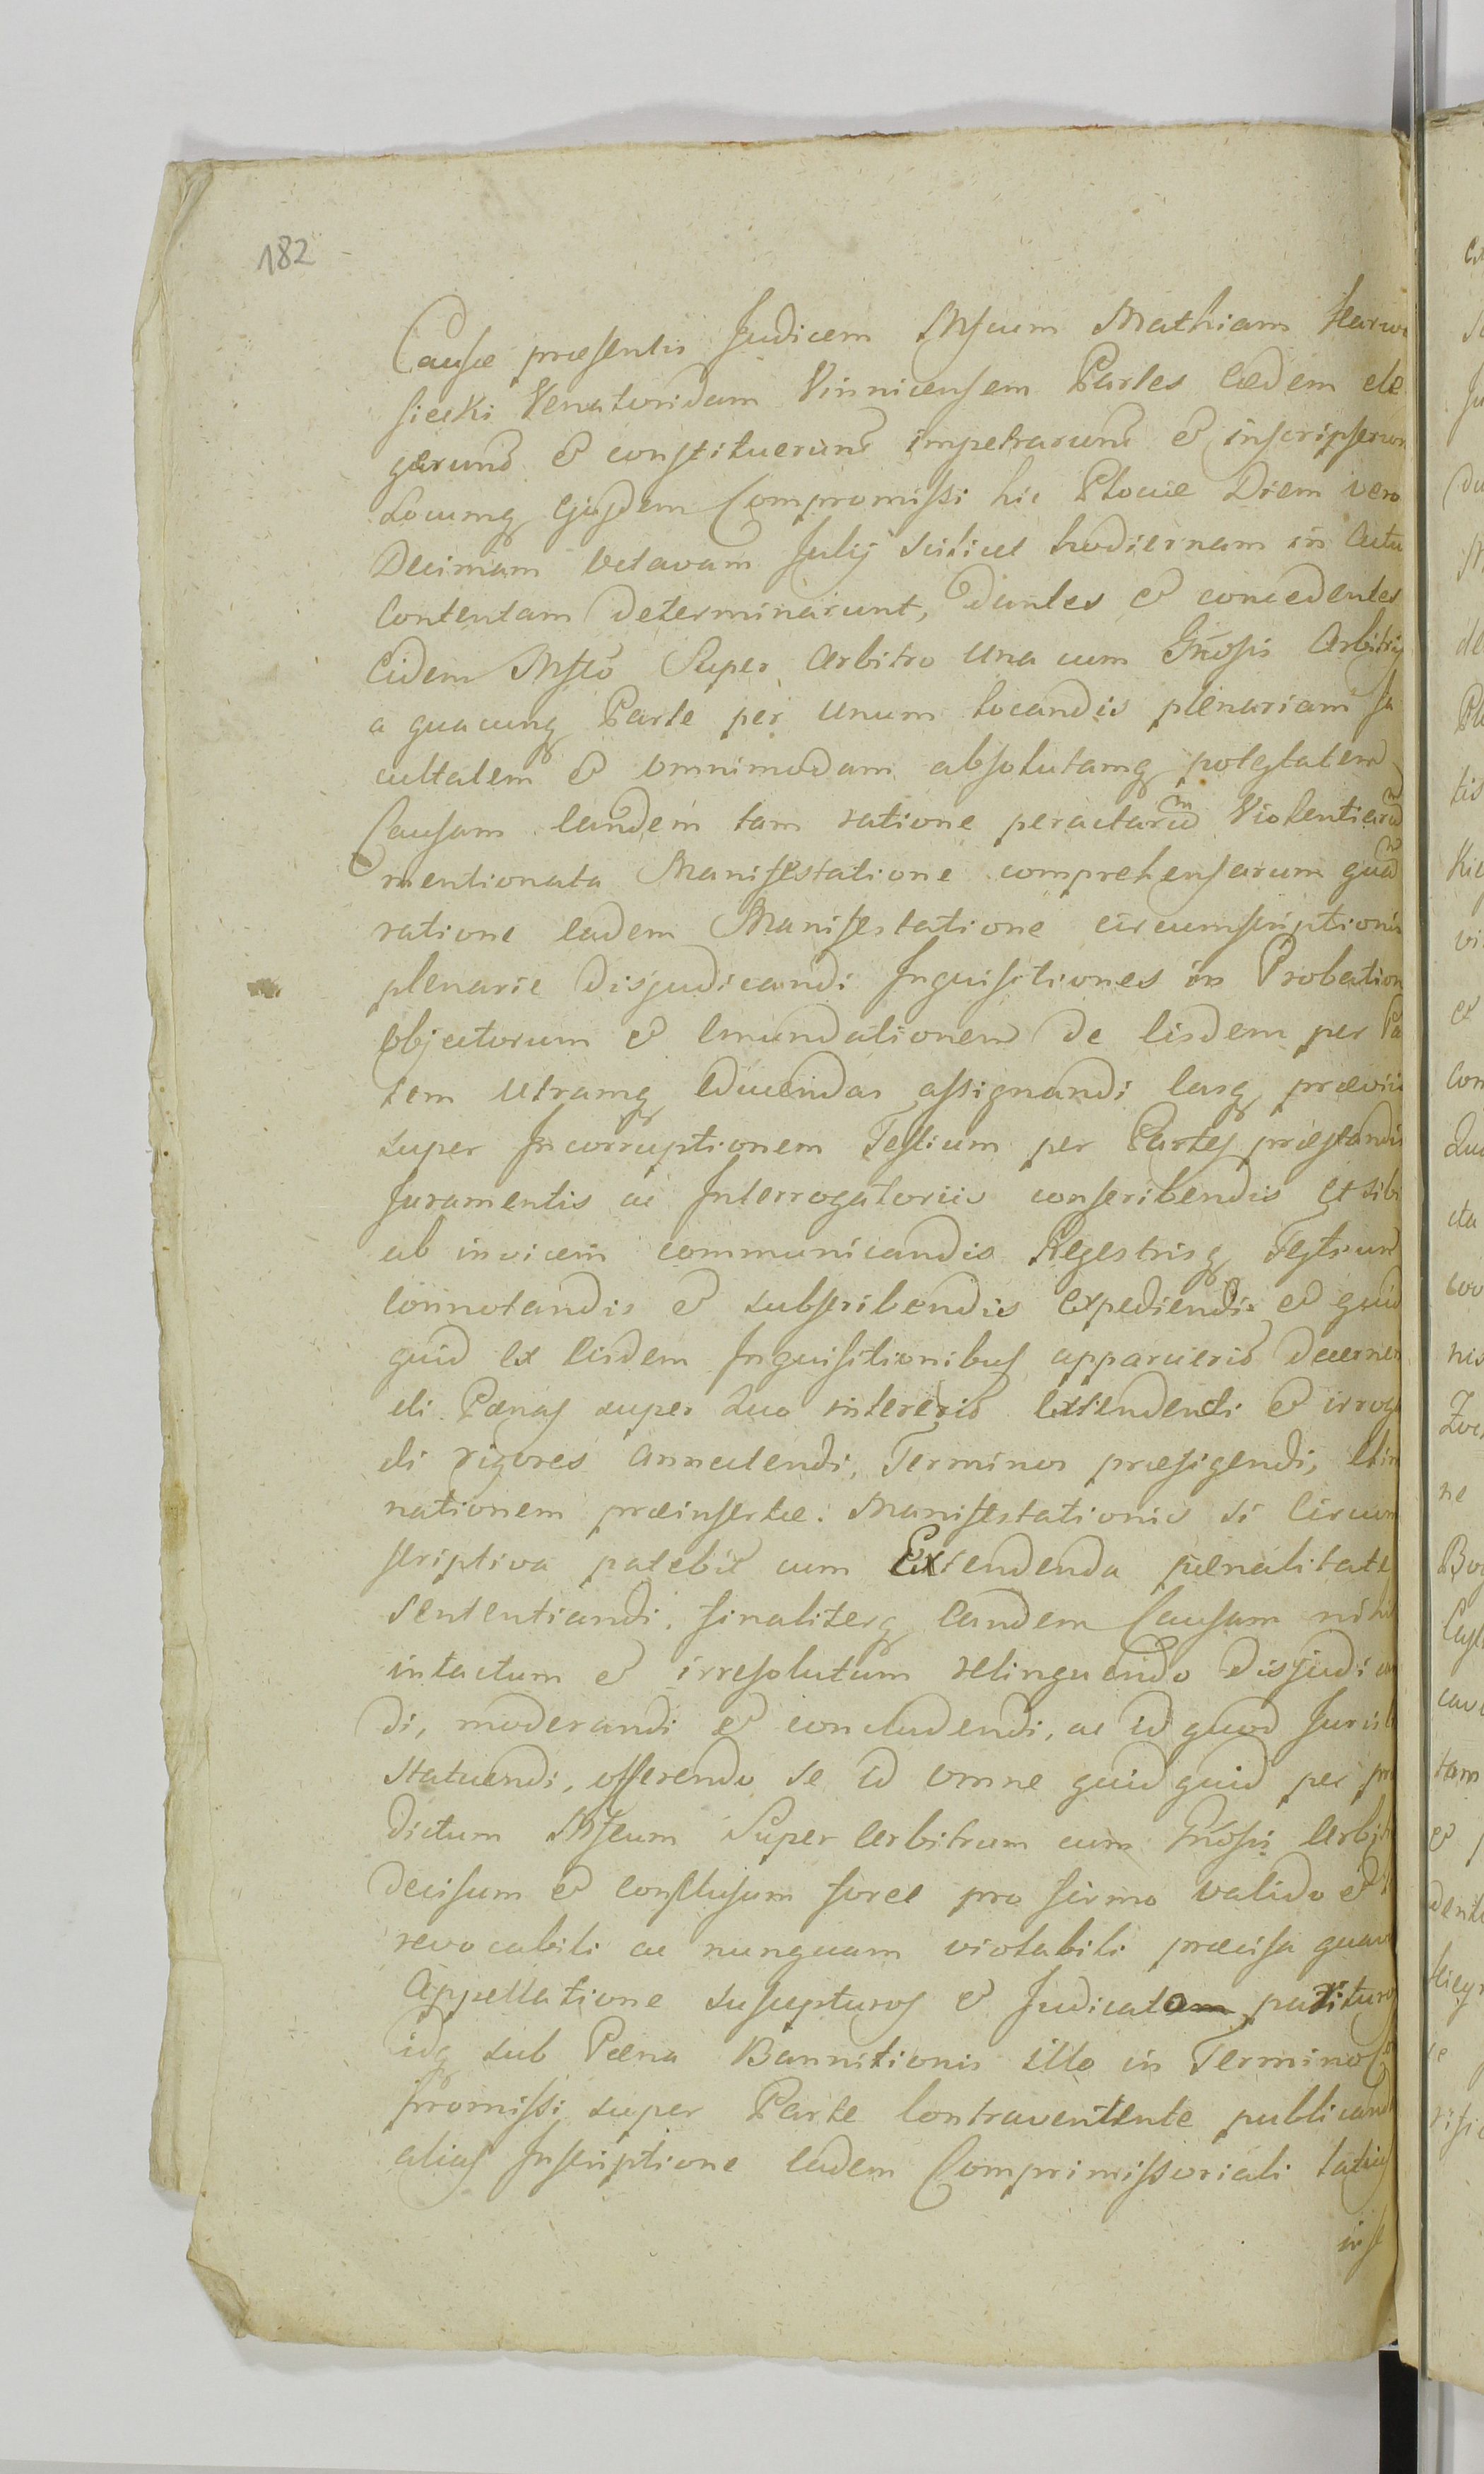 182
Causæ præsentis Judicem Mfcum Mathiam Karwo
siecki Venatoridam Vinnicensem Partes eædem ele
gerunt & constituerunt impetrarunt & inscripserun
Locumq Ejusdem Compromissi hic Plociæ Diem vero
Decimam octavam Julij scilicet hodiernam in Actu
Contentam determinarunt, dantes & concedentes
Eidem Mfco Super Arbitro una cum Gnosis Arbitris
a quacunq Parte per unum locandis plenariam fa
cultatem & omnimodam absolutamq potestatem
Causam eandem tam ratione peractarum Violentiarum
mentionata Manifestatione comprehensarum quam
ratione eadem Manifestatione circumscriptionis
plenarie disjudicandi Inquisitiones in Probation
objectorum & emundationem de Eisdem per Pa
tem utramq educendas assignandi easq præviis
super Incorruptionem Testium per Partes præstandis
Juramentis ac Interrogatoriis conscribendis et sibi
ab invicem communicandis Regestrisq Testium
connotandis & subscribendis expediendi & quid
quid ex Eisdem Inquisitionibus apparuerit decernen
di Pænas super quo intererit extendendi & irroga
di rigores annectendi, Terminos præfigendi, Elim
nationem præinsertæ Manifestationis si Circum
scriptiva patebit cum Extendenda pænalitate
sententiandi, finaliterq eandem Causam nihil
intactum & irresolutum relinquendo disjudican
di, moderandi & concludendi, ac id quod Juris
statuendi, offerendo se id omne quidquid per præ
dictum Mfcum Super Arbitrum cum Gnosis Arbitr
decisum & conclusum foret pro firmo valido &
revocabili ac nunquam violabili præcisa quavi
Appellatione suscepturos & Judicatum parituros
idq sub Pæna Bannitionis illo in Termino Co
promissi super Parte Contraveniente publicand
alias Inscriptione eadem Comprimissoriali latius
inse